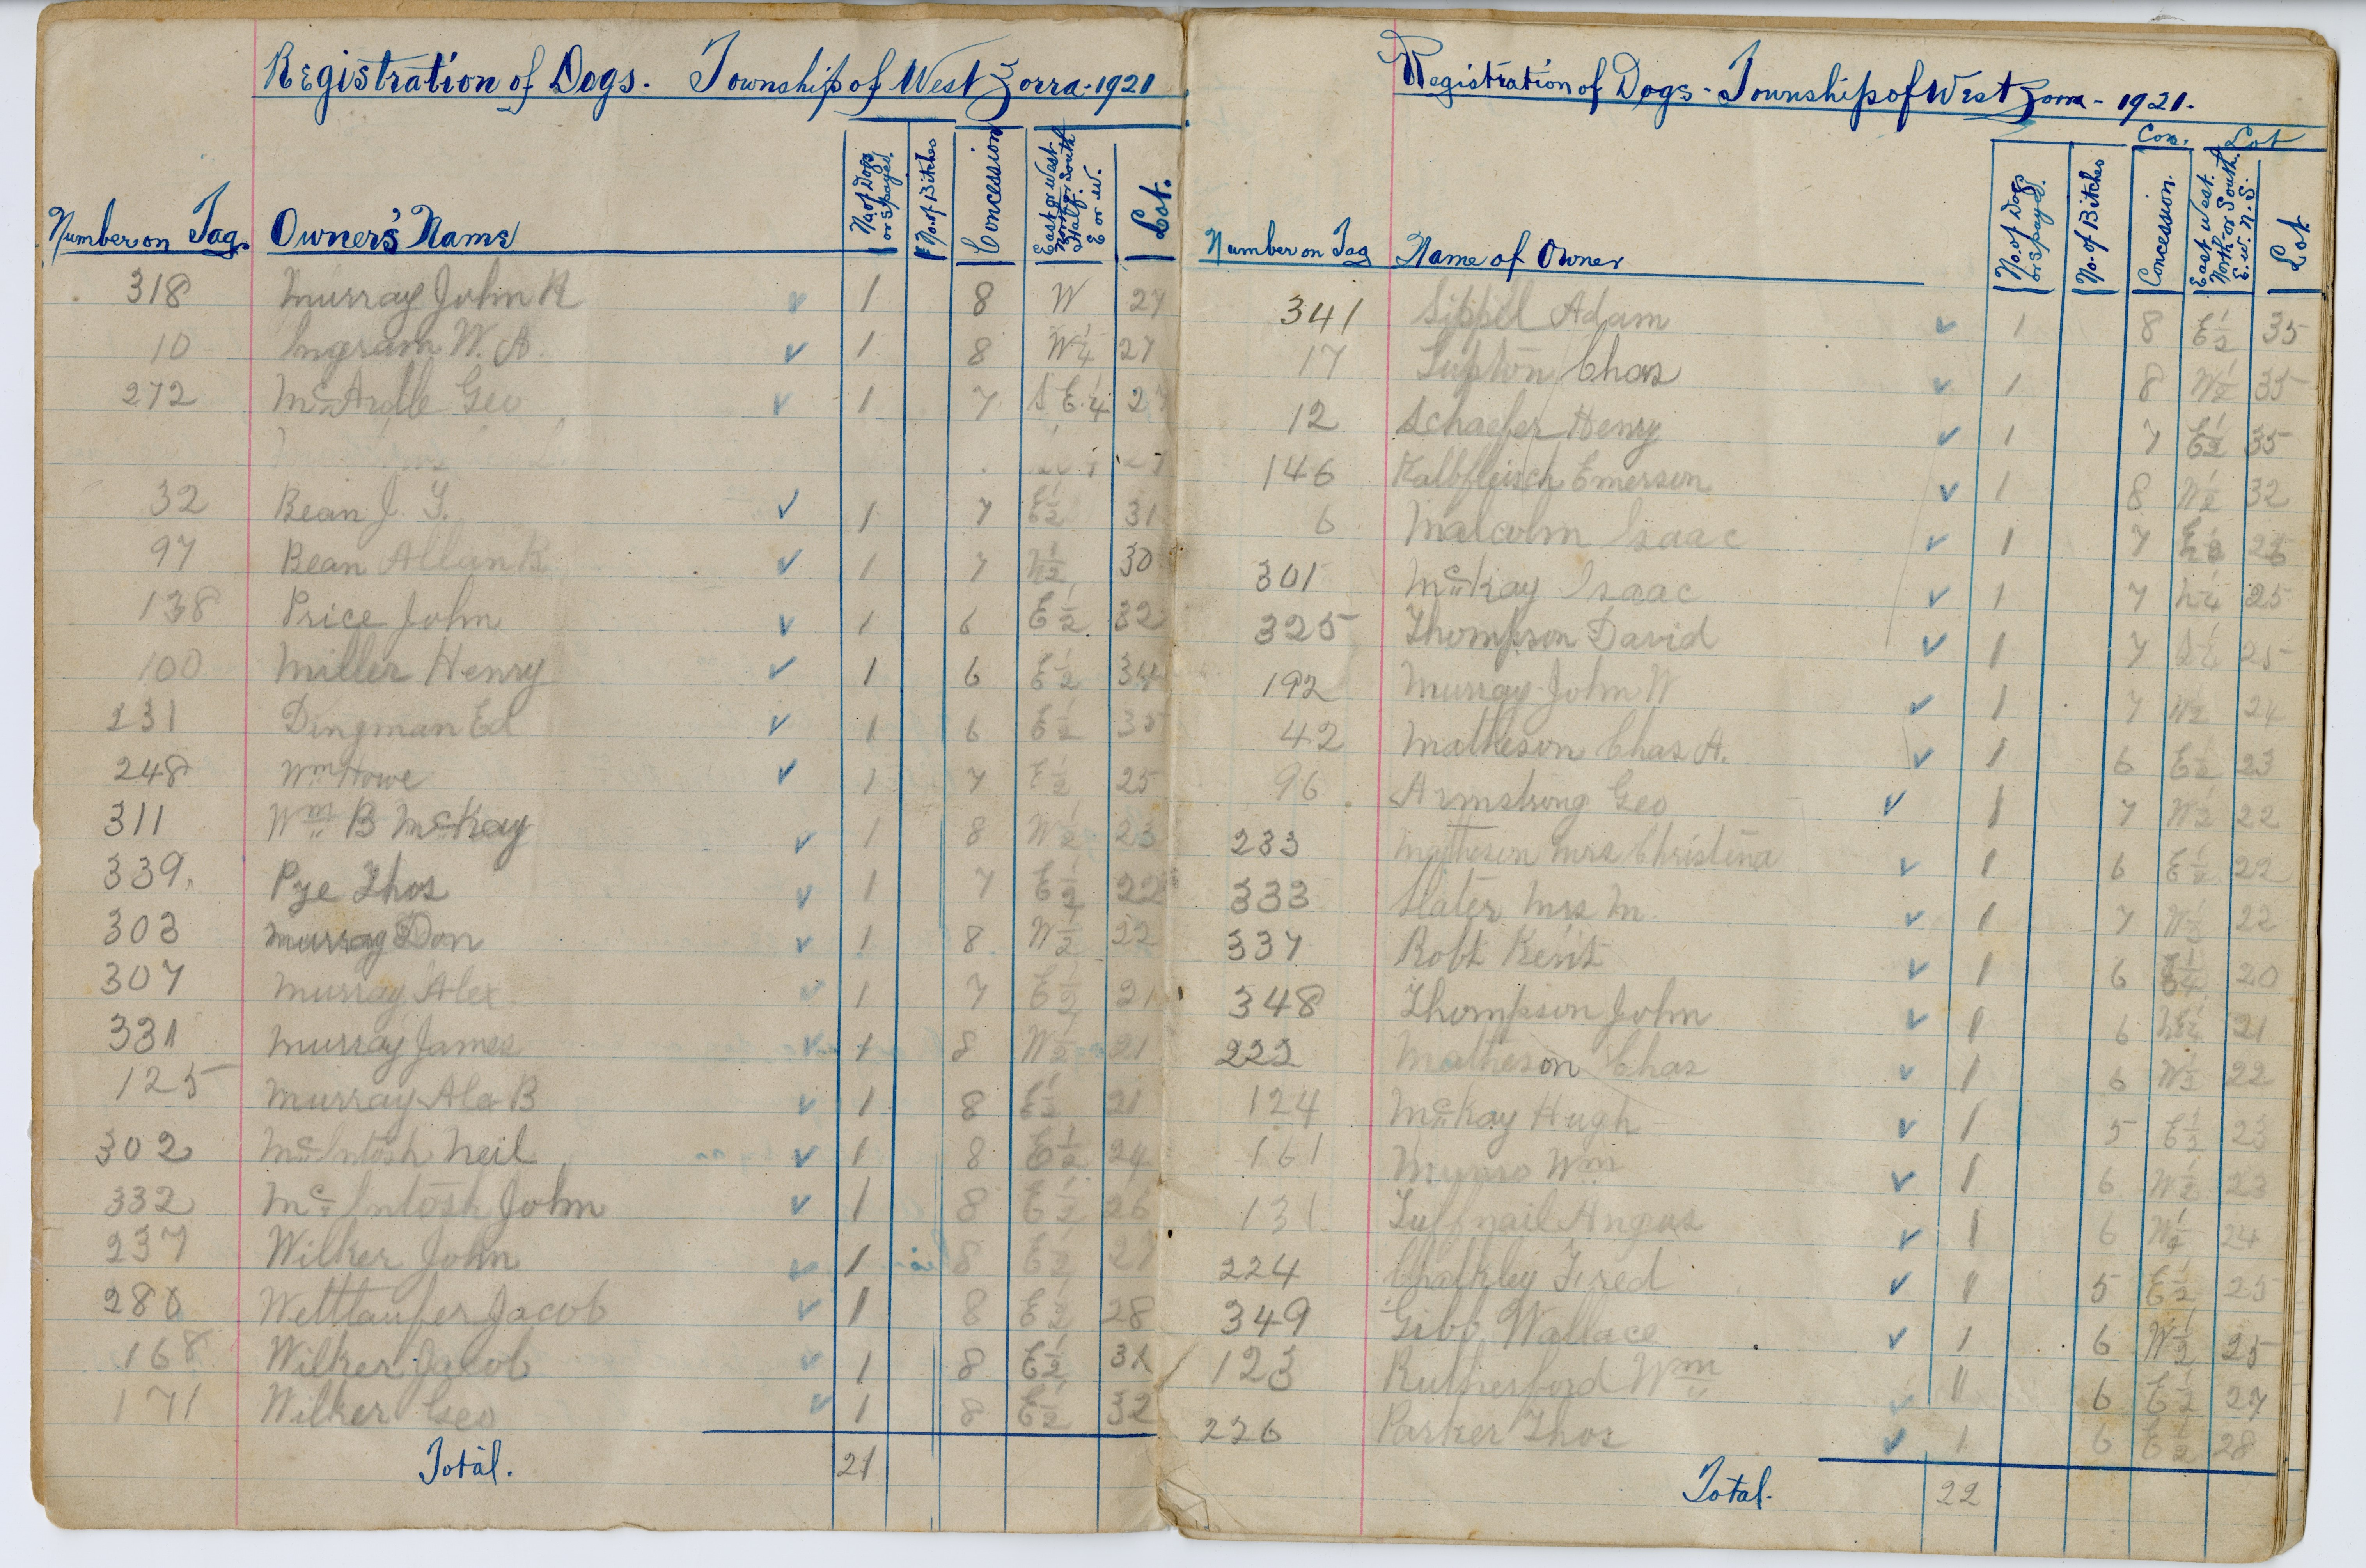 Registration of Dogs. Township of West Zorra-1921
Number on Tag. Owner's Name No. of Dogs or Spayed. No. of Bitches Concession East or West North or South Half. E or W. Lot.
318 Murray John R 1 8 W 27
10 Ingram W. A. 1 8 W 1/4 27
272 McArdle Geo 1 7 S E 1/4 27
32 Bean J. G. 1 7 E 1/2 31
97 Bean Allan R 1 7 1/2 30
138 Price John 1 6 E 1/2 32
100 Miller Henry 1 6 E 1/2 34
231 Dingman Ed 1 6 E 1/2 35
248 Wm Howe 1 7 E 1/2 25
311 Wm B McKay 1 8 W 1/2 23
339. Pye Thos 1 7 E 1/2 22
303 Murray Don 1 8 W 1/2 22
307 Murray Alex 1 7 E 1/2 21
331 Murray James 1 8 W 1/2 21
125 Murray Alex B 1 8 E 1/2 21
302 McIntosh Neil 1 8 E 1/2 24
332 McIntosh John 1 8 E 1/2 26
237 Wilker John 1 8 E 1/2 27
280 Wettlaufer Jacob 1 8 E 1/2 28
168 Wilker Jacob 1 8 E 1/2 31
171 Wilker Geo 1 8 E 1/2 32
Total. 21
Registration of Dogs - Township of West Zorra - 1921.
Con. Lot
Number on Tag Name of Owner No. of Dogs or Spayed. No. of Bitches Concession. East West. North or South. E. W. N. S. Lot
341 Sippel Adam 1 8 E 1/2 35
17 Lupton Chas 1 8 W 1/2 35
12 Schaefer Henry 1 7 E 1/2 35
146 Kalbfleisch Emerson 1 8 W 1/2 32
6 Malcolm Isaac 1 7 26
301 McKay Isaac 1 7 1/4 25
325 Thompson David 1 7 25
192 Murray John W 1 7 W 1/2 24
42 Matheson Chas A. 1 6 E 1/2 23
96 Armstrong Geo 1 7 W 1/2 22
233 Matheson Mrs Christina 1 6 E 1/2 22
333 Slater Mrs M. 1 7 W 1/2 22
337 Robt Kent 1 6 20
348 Thompson John 1 6 21
222 Matheson Chas 1 6 W 1/2 22
124 McKay Hugh 1 5 E 1/2 23
161 Munro Wm 1 6 W 1/2 23
131 Tuffnail Angus 1 6 W 1/2 24
224 Chalkley Fred 1 5 E 1/2 25
349 Gibb Wallace 1 6 W 1/2 25
123 Rutherford Wm 11 6 E 1/2 27
226 Parker Thos 1 6 E 1/2 28
Total. 22